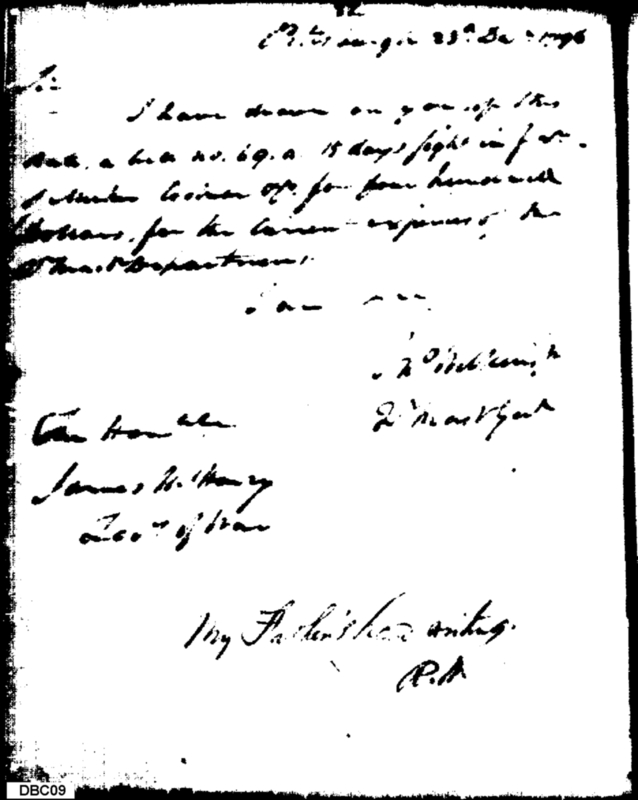 Pittsburgh 23d Dec 1796
Sir
I have drawn on you of this
date, a bill no. 69. a 15 days sight in f
for four hundred
Dollars, for the Current expences of the
Qr Mastr Department.
I am
Jno Wilkins Jr
Qr Mastr Genl
The Honble
James McHenry
Secy of War
My Father's hand writing.
DBC09